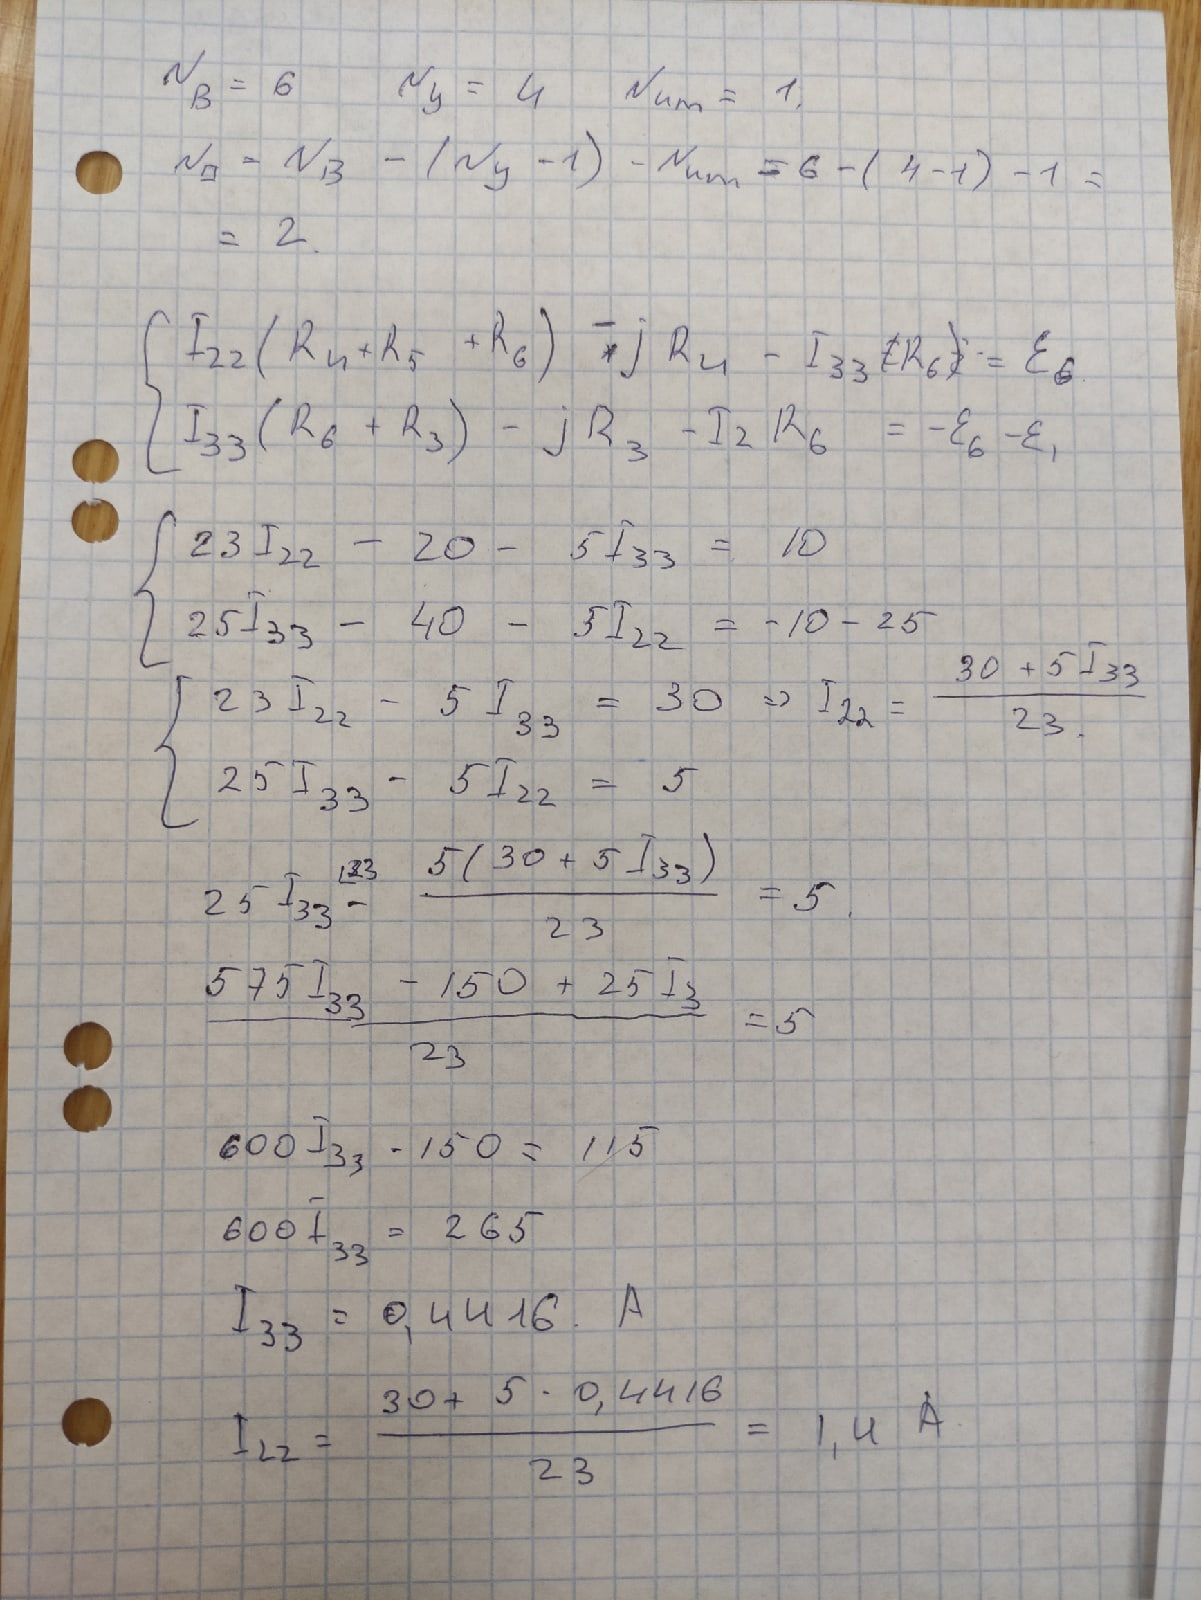 N_В = 6   N_у = 4   N_ит = 1.
N_п = N_В - (N_у - 1) - N_ит = 6 - (4 - 1) - 1 =
= 2.
I_22 (R_4 + R_5 + R_6) - j R_4 - I_33 R_6 = ε_6.
I_33 (R_6 + R_3) - j R_3 - I_2 R_6 = -ε_6 - ε_1
23 I_22 - 20 - 5 I_33 = 10
25 I_33 - 40 - 5 I_22 = -10 - 25
23 I_22 - 5 I_33 = 30 => I_22 = (30 + 5 I_33) / 23.
25 I_33 - 5 I_22 = 5
25 I_33 |23 - 5(30 + 5 I_33) / 23 = 5.
(575 I_33 - 150 + 25 I_3) / 23 = 5
600 I_33 - 150 = 115
600 I_33 = 265
I_33 = 0,4416. A
I_22 = (30 + 5 · 0,4416) / 23 = 1,4 A.